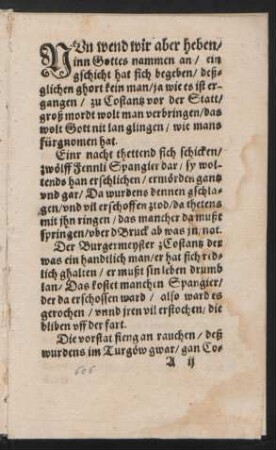 NUn wend wir aber heben/
inn Gottes nammen an/ ein
gschicht hat sich begeben/ deß-
glichen ghort kein man/ ja wie es ist er-
gangen/ zů Costantz vor der Statt/
groß mordt wolt man verbringen/ das
wolt Gott nit lan glingen/ wie mans
fürgnomen hat.
Einr nacht thettend sich schicken/
zwölff Fennli Spangier dar/ sy wol-
tends han erschlichen/ ermörden gantz
vnd gar/ Da wurdens dennen gschla-
gen/ vnd vil erschossen tod/ da thetens
mit jhn ringen/ das mancher da mußt
springen/ vber d Bruck ab was jn not.
Der Burgermeyster z Costantz der
was ein handtlich man/ er hat sich red-
lich ghalten/ er mußt sin leben drumb
lan/ Das kostet manchen Spangier/
der da erschossen ward/ also ward es
gerochen/ vnnd jren vil erstochen/ die
bliben vff der fart.
Die vorstat fieng an rauchen/ deß
wurdens im Turgöw gwar/ gan Co-
A ij
606